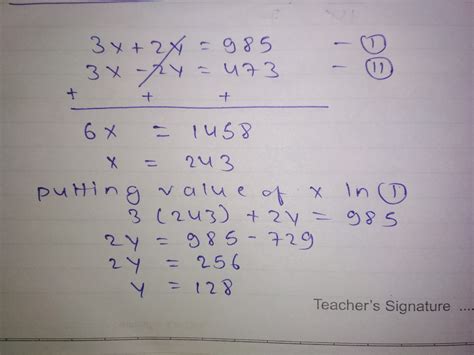 3x + 2y = 985 — (I)
3x - 2y = 473 — (II)
+ + +
6x = 1458
x = 243
putting value of x in (I)
3 (243) + 2y = 985
2y = 985 - 729
2y = 256
y = 128
Teacher's Signature ....